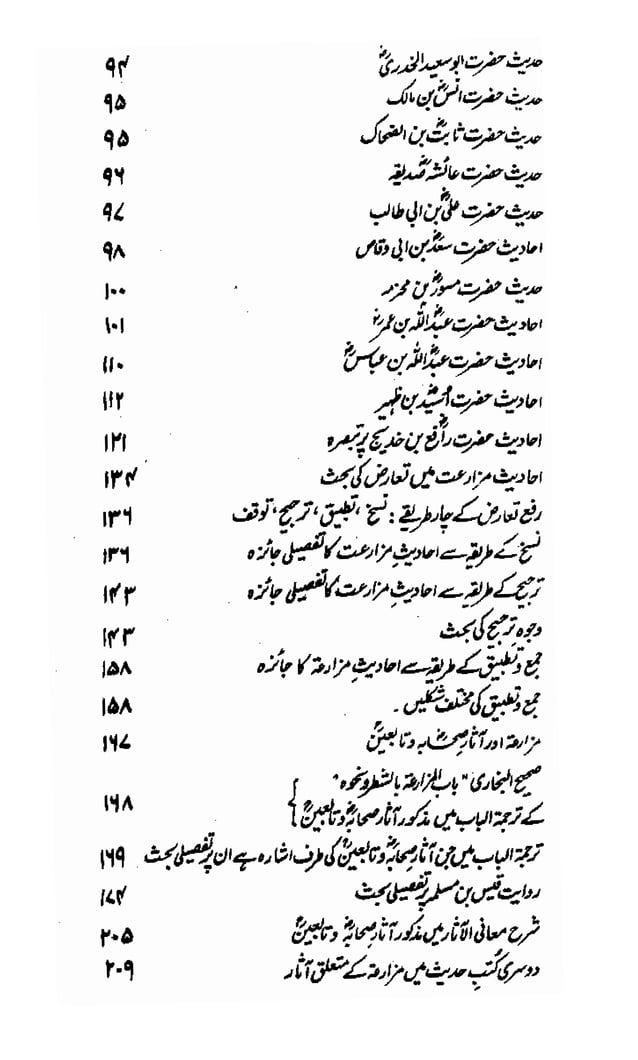 حدیث حضرت ابو سعید الخدریؓ ۹۴
حدیث حضرت انسؓ بن مالک ۹۵
حدیث حضرت ثابتؓ بن الضحاک ۹۵
حدیث حضرت عائشہؓ صدیقہ ۹۶
حدیث حضرت علیؓ بن ابی طالب ۹۷
احادیث حضرت سعدؓ بن ابی وقاص ۹۸
حدیث حضرت مسورؓ بن مخرمہ ۱۰۰
احادیث حضرت عبداللہ بن عمرؓ ۱۰۱
احادیث حضرت عبداللہ بن عباسؓ ۱۱۰
احادیث حضرت اُسیدؓ بن ظہیر ۱۱۲
احادیث حضرت رافعؓ بن خدیج پر تبصرہ ۱۲۱
احادیث مزارعت میں تعارض کی بحث ۱۳۴
رفع تعارض کے چار طریقے: نسخ، تطبیق، ترجیح، توقف ۱۳۶
نسخ کے طریقہ سے احادیثِ مزارعت کا تفصیلی جائزہ ۱۳۶
ترجیح کے طریقہ سے احادیثِ مزارعت کا تفصیلی جائزہ ۱۴۳
وجوہِ ترجیح کی بحث ۱۴۳
جمع و تطبیق کے طریقہ سے احادیثِ مزارعۃ کا جائزہ ۱۵۸
جمع و تطبیق کی مختلف شکلیں۔ ۱۵۸
مزارعۃ اور آثارِ صحابہؓ و تابعینؒ ۱۶۷
صحیح البخاری "باب المزارعۃ بالشطر ونحوہ"
کے ترجمۃ الباب میں مذکور آثارِ صحابہؓ و تابعینؒ } ۱۶۸
ترجمۃ الباب میں جن آثارِ صحابہؓ و تابعینؒ کی طرف اشارہ ہے ان پر تفصیلی بحث ۱۶۹
روایت قیس بن مسلم پر تفصیلی بحث ۱۷۴
شرح معانی الآثار میں مذکور آثارِ صحابہؓ و تابعینؒ ۲۰۵
دوسری کُتبِ حدیث میں مزارعۃ کے متعلق آثار ۲۰۹